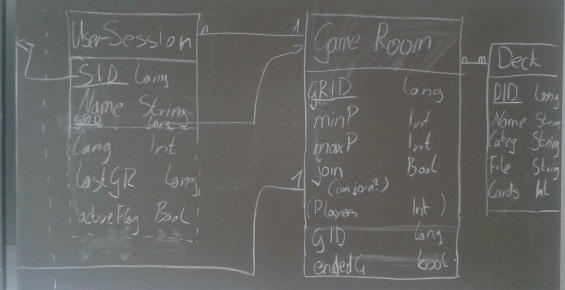 User-Session
SID Long
Name String
GRID Long
Lang Int
LastGR Long
activeFlag Bool
n 1
Game Room
GRID Long
minP Int
maxP Int
join Bool
(canjoin?)
(Players Int)
GID Long
endedG bool
1
n m
Deck
DID Long
Name String
Categ String
File String
Cards Int